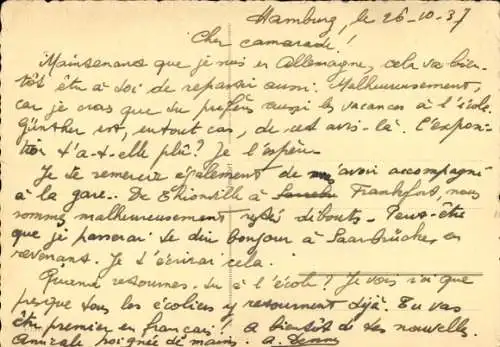 Hamburg, le 26-10-37
Cher camarade!
Maintenant que je suis en Allemagne, cela va bien-
tôt être à toi de repartir aussi. Malheureusement,
car je crois que tu préfères aussi les vacances à l'école.
Günther est, en tout cas, de cet avis-là. L'exposi-
tion t'a-t-elle plu? Je l'espère.
Je te remercie également de m'avoir accompagné
à la gare. De Thionville à Frankfort, nous
sommes malheureusement restés debouts. Peut-être
que je passerai te dire bonjour à Saarbrücken, en
revenant. Je t'écrirai cela.
Quand retournes-tu à l'école? Je vois ici que
presque tous les écoliers y retournent déjà. Tu vas
être premier en français! A bientôt de tes nouvelles.
Amicale poignée de mains. A.